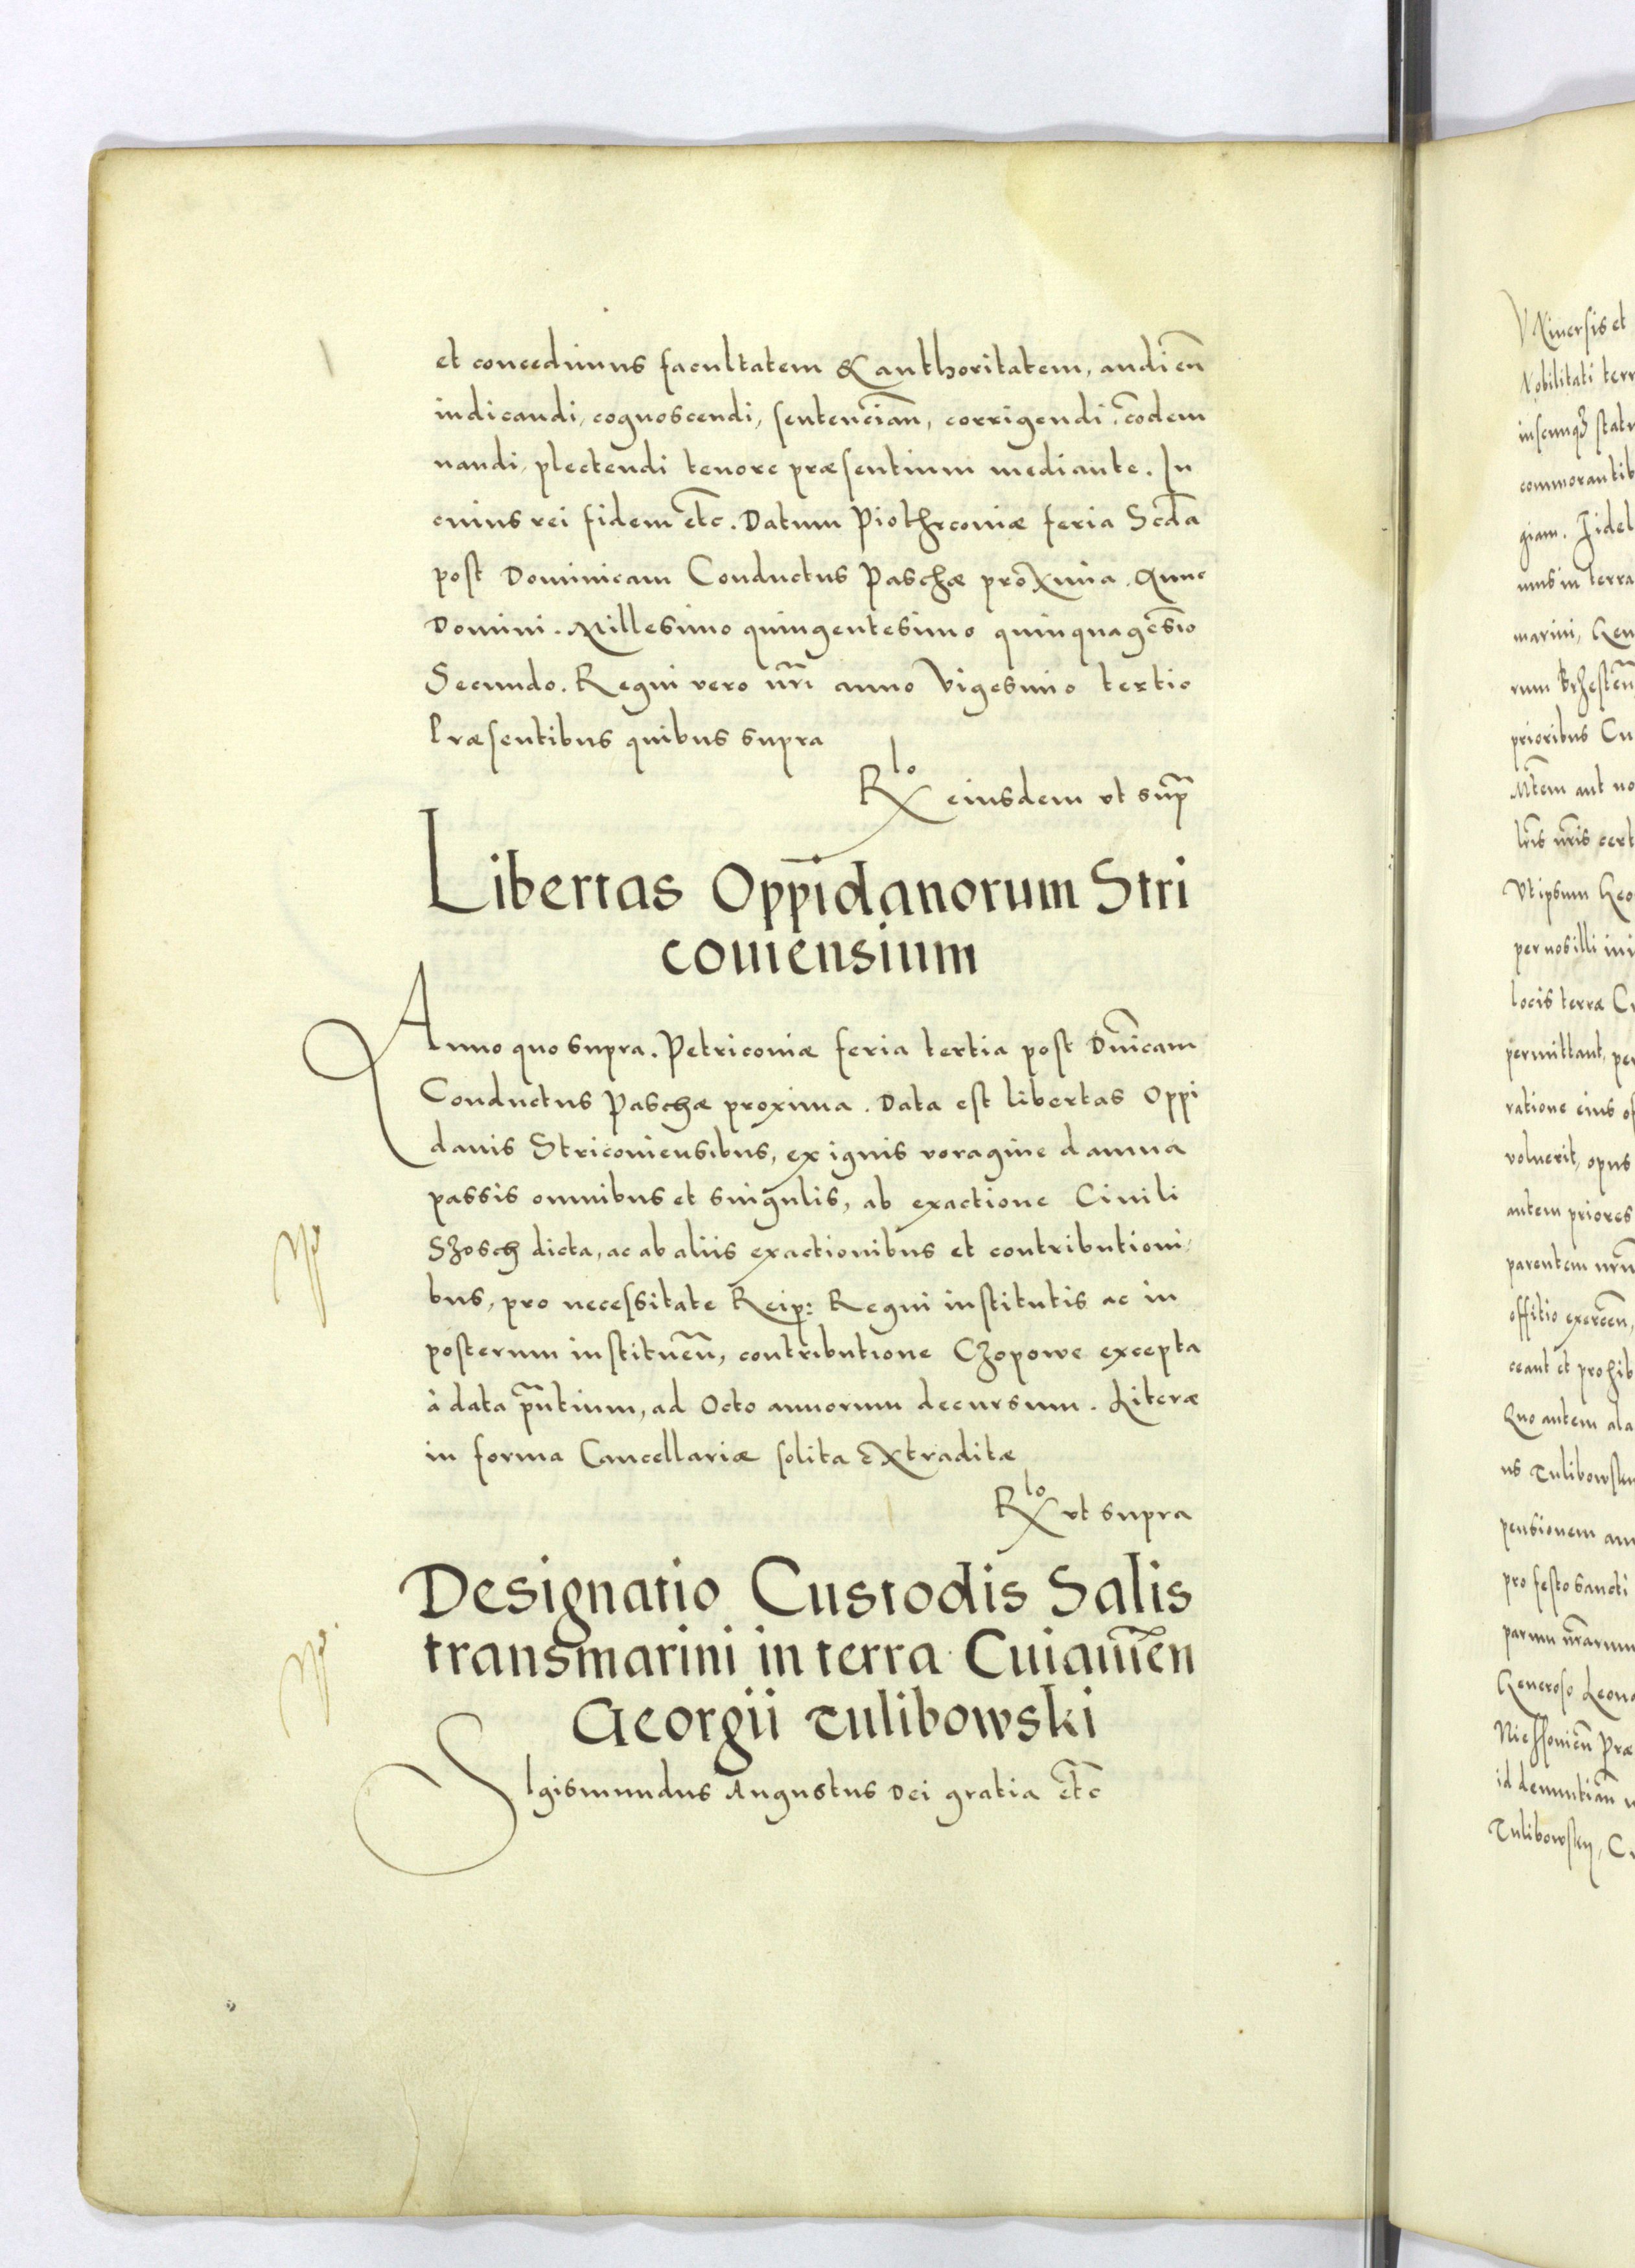 et concedimus facultatem & authoritatem, audien̄
iudicandi, cognoscendi, sentencian̄, corrigendi, cōdem
nandi, plectendi tenore præsentium mediante. In
cuius rei fidem etc̄. Datum Piothrcouiæ feria Scd̄a
post Dominicam Conductus Paschæ proxima. Anno
Domini. Millesimo quingentesimo quinquages̄io
Secundo. Regni vero nr̄i anno Vigesimo tertio
Præsentibus quibus supra
Rlo eiusdem vt sup̄
Libertas Oppidanorum Stri
couiensium
Anno quo supra. Petricouiæ feria tertia post Dnīcam
Conductus Paschæ proxima. Data est libertas Oppi
danis Stricouiensibus, ex ignis voragine damna
passis omnibus et singulis, ab exactione Ciuili
Szosch dicta, ac ab aliis exactionibus et contributioni
bus, pro necessitate Reip: Regni institutis ac in
posterum instituen̄, contributione Czopowe excepta
à data pn̄tium, ad Octo annorum decursum. Literæ
in forma Cancellariæ solita extraditæ
Rlo vt supra
Designatio Custodis Salis
transmarini in terra Cuiauien̄
Georgii Tulibowski
SIgismundus Augustus Dei gratia etc̄
VNiuersis et
Nobilitati terr
commorantib
giam. Fidel
mus in terra
marini, Gen
prioribus Cu
aut no
cert
Vt ipsum Geo
per nos illi
locis terræ
permittant, per
ratione eius of
voluerit, opus
autem priores
parentem nrū
offitio exercen̄,
ceant et prohib
Quo autem ala
us Tulibowsky
pensionem an
pro festo Sancti
parum nr̄arum
Generoso Leona
Præ
id
Tulibowsky, C